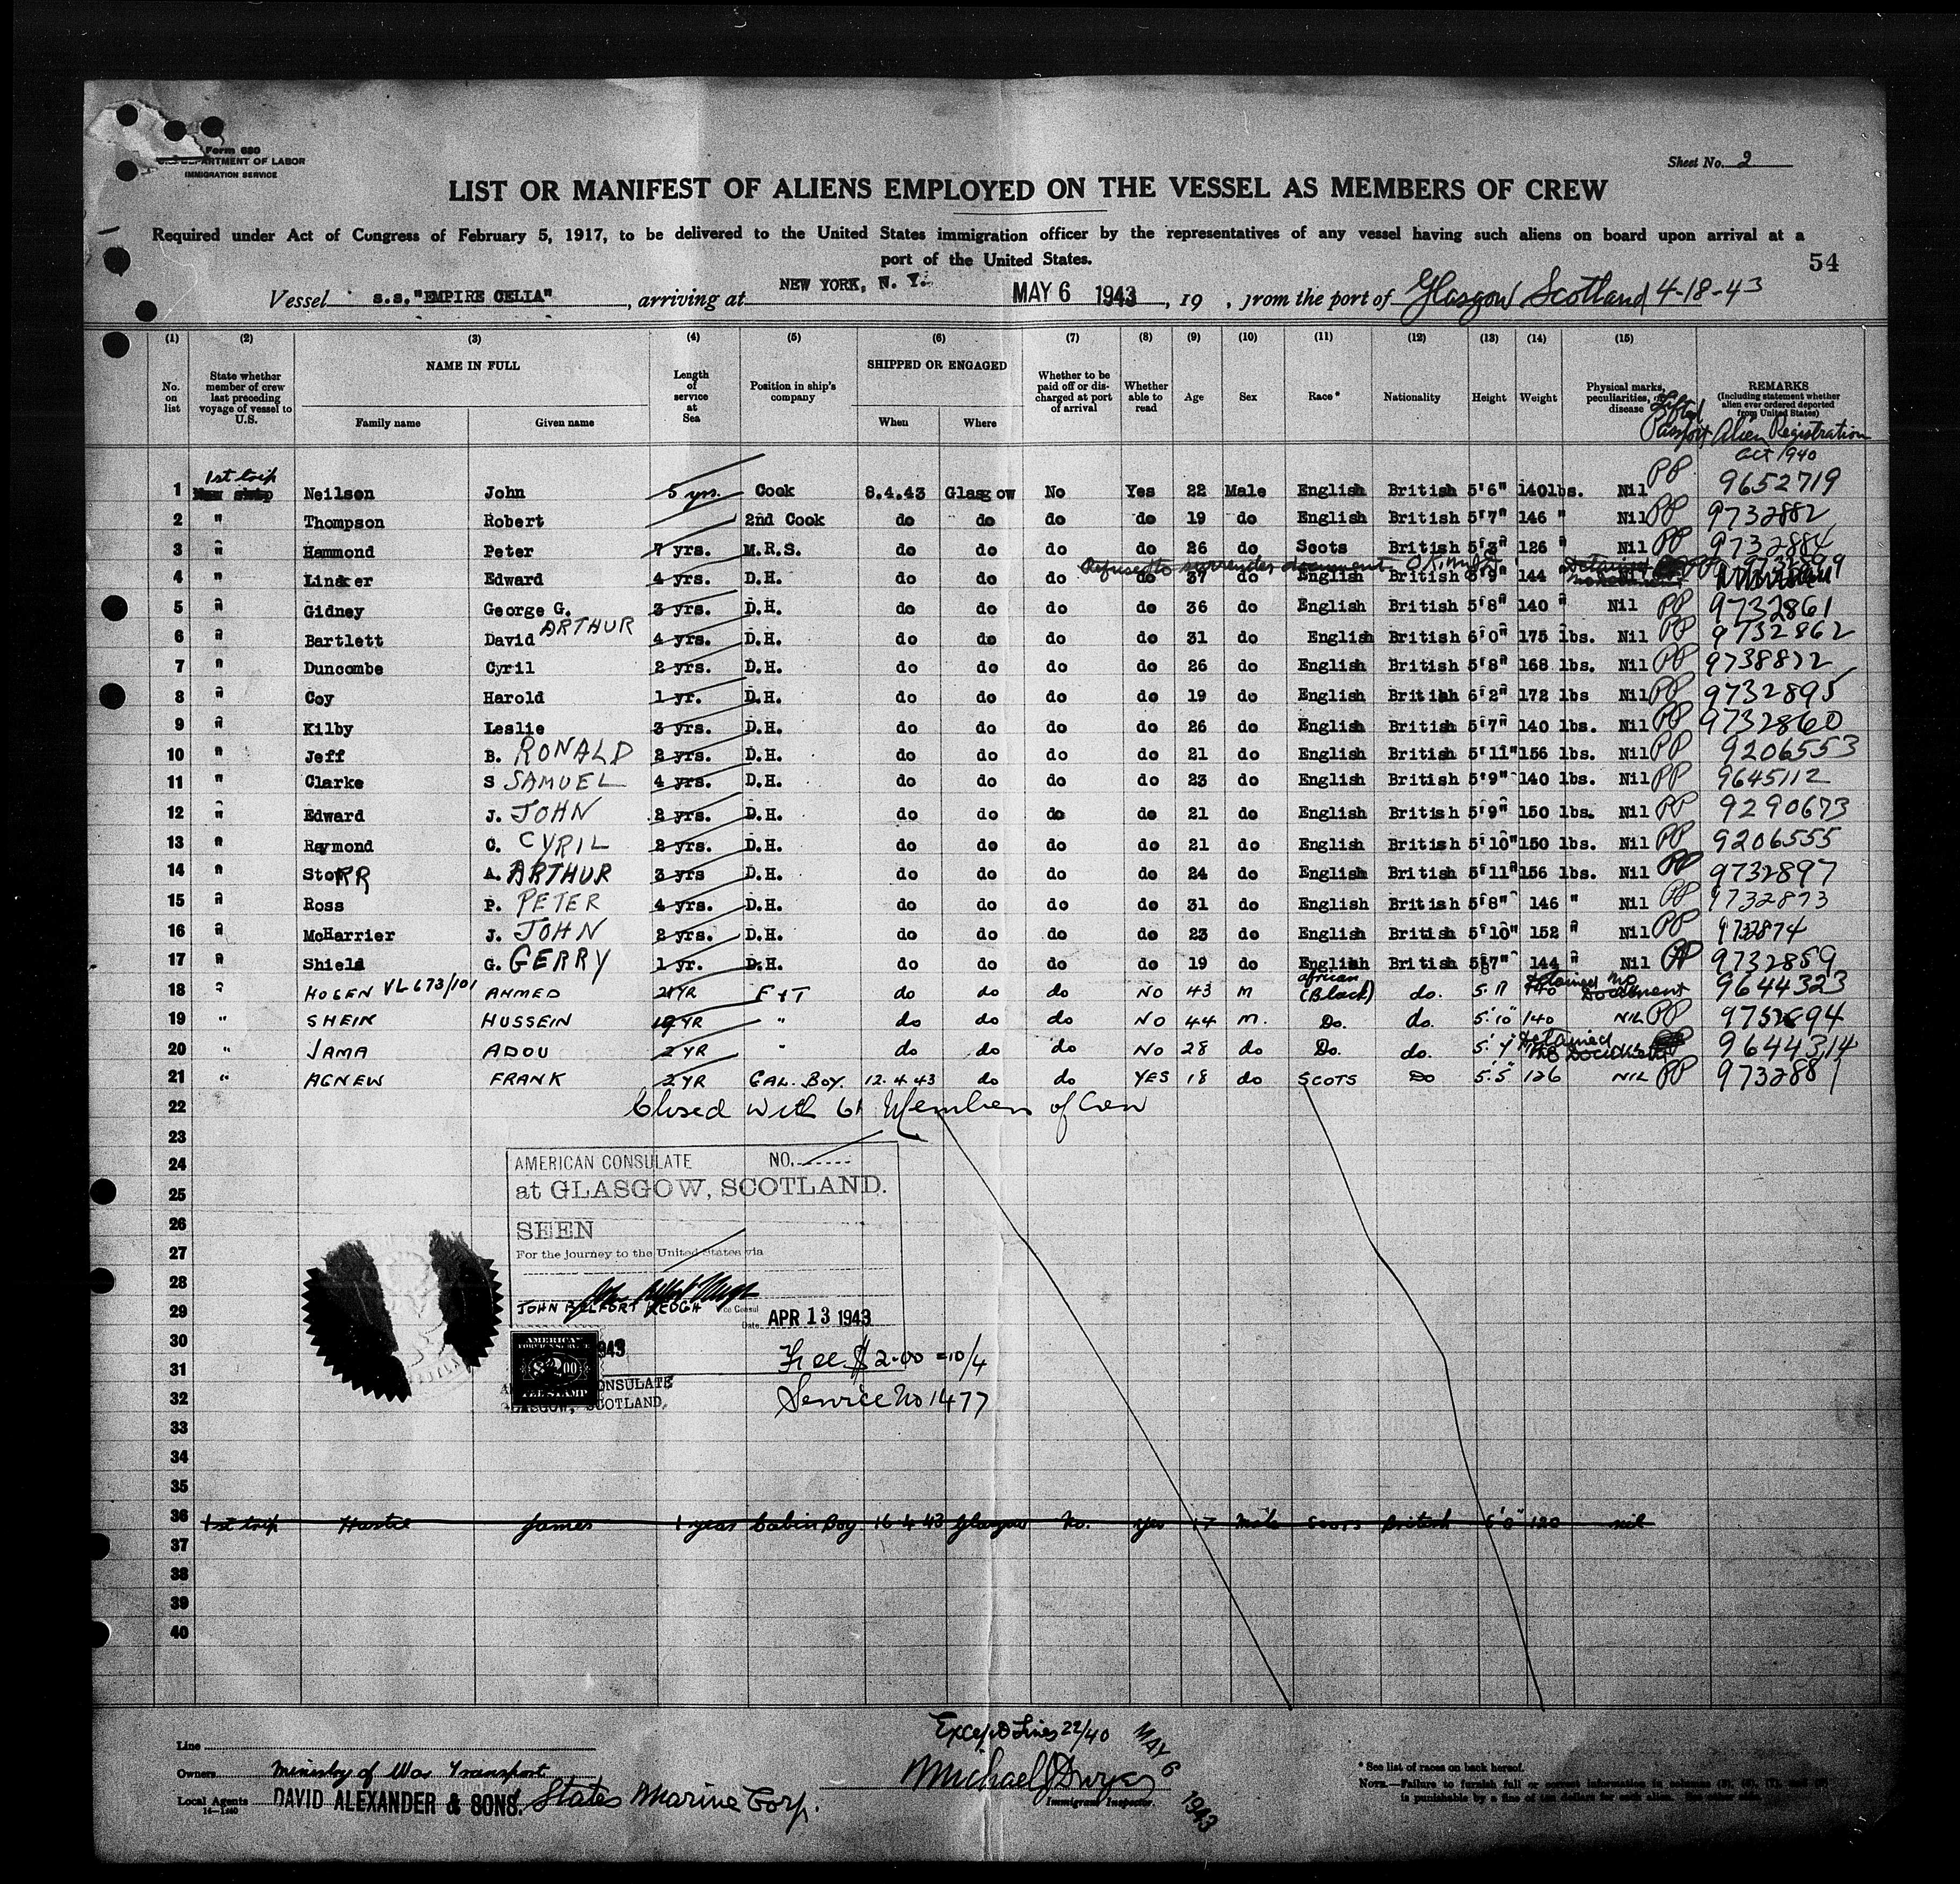 Form 680
U.S. DEPARTMENT OF LABOR
IMMIGRATION SERVICE
Sheet No. 2
LIST OR MANIFEST OF ALIENS EMPLOYED ON THE VESSEL AS MEMBERS OF CREW
Required under Act of Congress of February 5, 1917, to be delivered to the United States immigration officer by the representatives of any vessel having such aliens on board upon arrival at a
port of the United States.
54
Vessel s.s. "EMPIRE CELIA", arriving at NEW YORK, N. Y. MAY 6 1943, 19 , from the port of Glasgow Scotland 4-18-43
(1) (2) (3) (4) (5) (6) (7) (8) (9) (10) (11) (12) (13) (14) (15)
No. on list
State whether member of crew last preceding voyage of vessel to U.S.
NAME IN FULL
Family name Given name
Length of service at Sea
Position in ship's company
SHIPPED OR ENGAGED
When Where
Whether to be paid off or discharged at port of arrival
Whether able to read
Age Sex Race* Nationality Height Weight
Physical marks, peculiarities, disease
Lifted Passport
REMARKS
(Including statement whether alien ever ordered deported from United States)
Alien Registration
Act 1940
1 1st trip Neilson John 5 yrs. Cook 8.4.43 Glasgow No Yes 22 Male English British 5'6" 140lbs. Nil PP 9652719
2 " Thompson Robert 2nd Cook do do do do 19 do English British 5'7" 146 " Nil PP 9732882
3 " Hammond Peter 7 yrs. M.R.S. do do do do 26 do Scots British 5'3" 126 " Nil PP 9732884
Refuse to surrender document. O.K.
4 " Linaker Edward 4 yrs. D.H. do do do do 37 do English British 5'9" 144 Detained
5 " Gidney George G. 3 yrs. D.H. do do do do 36 do English British 5'8" 140 " Nil PP 9732861
6 " Bartlett David ARTHUR 4 yrs. D.H. do do do do 31 do English British 6'0" 175 lbs. Nil PP 9732862
7 " Duncombe Cyril 2 yrs. D.H. do do do do 26 do English British 5'8" 168 lbs. Nil PP 9738872
8 " Coy Harold 1 yr. D.H. do do do do 19 do English British 6'2" 172 lbs Nil PP 9732895
9 " Kilby Leslie 3 yrs. D.H. do do do do 26 do English British 5'7" 140 lbs. Nil PP 9732860
10 " Jeff B. RONALD 2 yrs. D.H. do do do do 21 do English British 5'11" 156 lbs. Nil PP 9206553
11 " Clarke S SAMUEL 4 yrs. D.H. do do do do 23 do English British 5'9" 140 lbs. Nil PP 9645112
12 " Edward J. JOHN 2 yrs. D.H. do do do do 21 do English British 5'9" 150 lbs. Nil PP 9290673
13 " Raymond C. CYRIL 2 yrs. D.H. do do do do 21 do English British 5'10" 150 lbs. Nil PP 9206555
14 " StoRR A. ARTHUR 3 yrs D.H. do do do do 24 do English British 5'11" 156 lbs. Nil PP 9732897
15 " Ross P. PETER 4 yrs. D.H. do do do do 31 do English British 5'8" 146 " Nil PP 9732873
16 " McHarrier J. JOHN 2 yrs. D.H. do do do do 23 do English British 5'10" 152 " Nil PP 9732874
17 " Shield G. GERRY 1 yr. D.H. do do do do 19 do English British 5'7" 144 " Nil PP 9732859
18 " HOGEN VL 673/101 AHMED 21 YR F & T do do do NO 43 M african (Black) do. 5.11 140 Detained No Document 9644323
19 " SHEIK HUSSEIN 19 YR " do do do NO 44 M. Do. do. 5'10" 140 NIL PP 9732894
20 " JAMA ADOU 2 YR " do do do NO 28 do Do. do. Detained No Document 9644314
21 " AGNEW FRANK 2 YR GAL. BOY. 12.4.43 do do YES 18 do SCOTS Do 5'.5" 126 NIL PP 9732881
22 Closed with 61 Members of Crew
23
24 AMERICAN CONSULATE NO.
25 at GLASGOW, SCOTLAND.
26 SEEN
27 For the journey to the United States via
28
29 JOHN BELFORT KEOGH Vice Consul
Date APR 13 1943
30 AMERICAN FOREIGN SERVICE $2.00 FEE STAMP
Fee $2.00 = 10/4
31
AMERICAN CONSULATE
GLASGOW, SCOTLAND.
32 Service No 1477
33
34
35
36 1st trip Hastie James 1 year Cabin Boy 16.4.43 Glasgow No. yes 17 Male Scots British 5'8" 120 nil
37
38
39
40
Except Lines 22/40
MAY 6 1943
Line
Owners Ministry of War Transport
Local Agents DAVID ALEXANDER & SONS. States Marine Corp.
Michael J Dwyer
Immigrant Inspector.
* See list of races on back hereof.
NOTE.—Failure to furnish full or correct information in columns
is punishable by a fine of ten dollars for each alien. See other side.